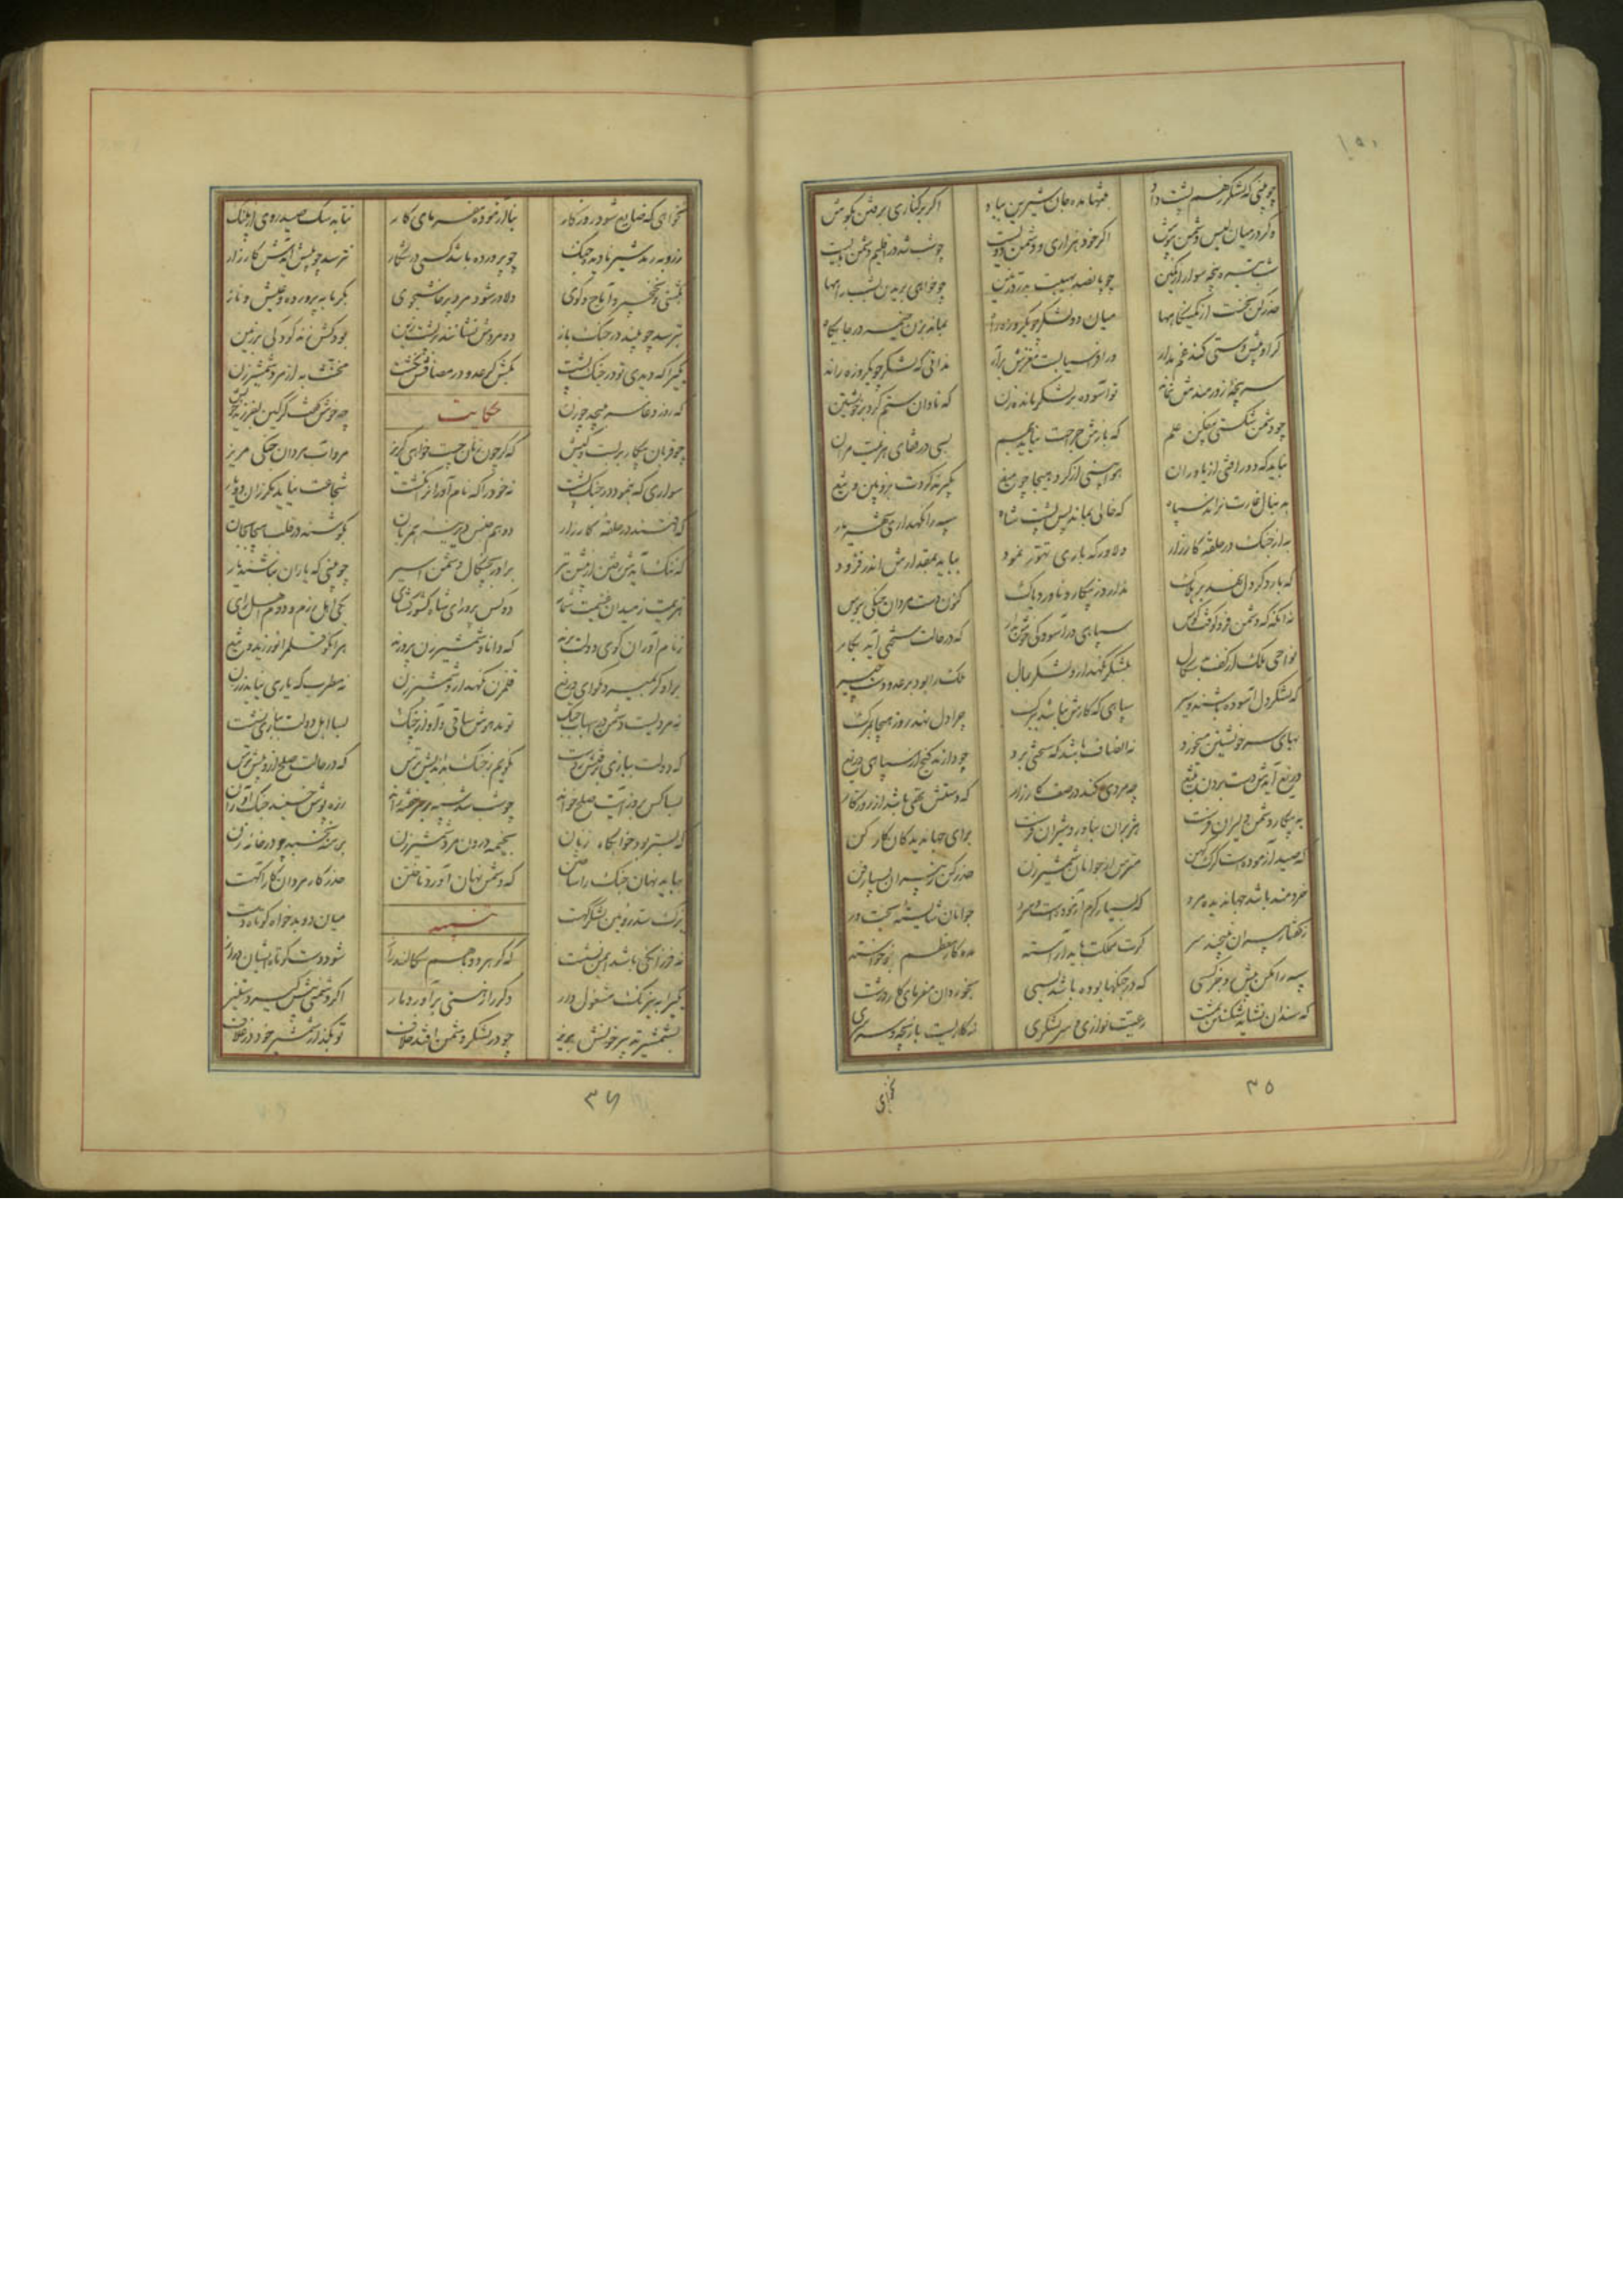 ۱۵۰
چو بینی که لشکر ز هم پشت داد	بتنها مده جان شیرین بباد	اگر بر کناری برفتن بکوش
وگر در میان لبس دشمن بپوش	اگر خود هزاری و دشمن دویست	چو شب شد در اقلیم دشمن مایست
شب تیره پنجه سوار از کمین	چو پانصد بهیبت بدرد زمین	چو خواهی بریدن بشب راهها
حذر کن نخست از کمینگاهها	میان دو لشکر چو یکروزه راه	بماند بزن خیمه در جایگاه
گر او پیش دستی کند غم مدار	ور افراسیابست مغزش برآر	ندانی که لشکر چو یکروزه راند
سر پنجه زورمندش نماند	تو آسوده بر لشکر مانده زن	که نادان ستم کرد بر خویشتن
چو دشمن شکستی بیفکن علم	که بازش جراحت نیاید بهم	بسی در قفای هزیمت مران
نباید که دور افتی از یاوران	هوا بینی از گرد هیجا چو میغ	بگیرند گردت بزوبین و تیغ
بدنبال غارت نراند سپاه	که خالی بماند پس پشت شاه	سپه را نگهداری شهریار
به از جنگ در حلقه کارزار	دلاور که باری تهور نمود	بباید بمقدارش اندر فزود
که بار دگر دل نهد بر هلاک	ندارد ز پیکار و ناورد باک	کنون دست مردان جنگی ببوس
نه آنگه که دشمن فرو کوفت کوس	سپاهی در آسودگی خوش بدار	که در حالت سختی آید بکار
نواحی ملک از کف بدسگال	بلشکر نگهدار و لشکر بمال	ملک را بود بر عدو دست چیر
که لشکر دل آسوده باشند و سیر	سپاهی که کارش نباشد ببرگ	چرا دل نهد روز هیجا بمرگ
بهای سر خویشتن میخورد	نه انصاف باشد که سختی برد	چو دارند گنج از سپاهی دریغ
دریغ آیدش دست بردن بتیغ	چه مردی کند در صف کارزار	که دستش تهی باشد از روزگار
به پیکار دشمن دلیران فرست	هژبران بناورد شیران فرست	برای جهاندیدگان کار کن
که صید آزموده است گرگ کهن	مترس از جوانان شمشیر زن	حذر کن ز پیران بسیار فن
خردمند باشد جهاندیده مرد	که بسیار گرم آزموده است و سرد	جوانان شایسته بخت ور
ز گفتار پیران نپیچند سر	گرت مملکت باید آراسته	مده کار معظم بنوخاسته
سپه را مکن پیش رو جز کسی	که در جنگها بوده باشد بسی	بخوردان مفرمای کار درشت
که سندان نشاید شکستن بمشت	رعیت نوازی و سر لشکری	نه کاریست بازیچه و سرسری
۳۵
نخواهی
نخواهی که ضایع شود روزگار	بنا آزموده مفرمای کار	نتابد سگ صید روی از پلنگ
ز روبه رمد شیر نادیده جنگ	چو پرورده باشد کسی در شکار	نترسد چو پیش آیدش کارزار
بکشتی و نخچیر و آماج و گوی	دلاور شود مرد پرخاشجوی	بگرمابه پرورده و عیش و ناز
بترسد چو بیند در جنگ باز	دو مردش نشانند بر پشت زین	بود کش زند کودکی بر زمین
یکیرا که دیدی تو در جنگ پشت	بکش گر عدو در مصافش نکشت	مخنث به از مرد شمشیر زن
که روز وغا سر بپیچد چو زن	حکایت	چه خوش گفت گرگین بفرزند خویش
چو قربان پیکار بربست و کیش	که گر چون زنان جست خواهی گریز	مرو آب مردان جنگی مریز
سواری که بنمود در جنگ پشت	نه خود را که نام آوران را بکشت	شجاعت نیاید مگر زان دو یار
که افتند در حلقه کارزار	دو همجنس هم سفره همزبان	بکوشند در قلب هیجا بجان
که ننگ آیدش رفتن از پیش تیر	برادر بچنگال دشمن اسیر	چو بینی که یاران نباشند یار
هزیمت ز میدان غنیمت شمار	دو کس پرور ای شاه کشور گشای	یکی اهل رزم و دوم اهل رای
ز نام آوران گوی دولت برند	که دانا و شمشیر زن پرورند	هر آنکو قلم را نورزید و تیغ
بر او گر بمیرد مگو ای دریغ	قلمزن نگهدار و شمشیر زن	نه مطرب که یاری نیاید ز زن
نه مردیست دشمن در اسباب جنگ	تو مدهوش ساقی و آواز چنگ	بسا اهل دولت ببازی نشست
که دولت ببازی برفتش ز دست	نگویم ز جنگ بداندیش ترس	که در حالت صلح ازو بیش ترس
بسا کس بروز آیت صلح خواند	چو شب شد سپه بر سر خفته راند	زره پوش خسبند جنگ آوران
که بستر بود خوابگاه زنان	بخیمه درون مرد شمشیر زن	برهنه نخسبد چو در خانه زن
بباید نهان جنگ را ساختن	که دشمن نهان آورد تاختن	حذر کار مردان کار آگهست
یزک سد رویین لشکر گهست	تنبیه	میان دو بدخواه کوتاه دست
نه فرزانگی باشد ایمن نشست	که گر هر دو با هم سگالند راز	شود دست کوتاه ایشان دراز
یکیرا به نیرنگ مشغول دار	دگر را ز هستی برآور دمار	اگر دشمنی پیش گیرد ستیز
بشمشیر تدبیر خونش بریز	چو در لشکر دشمن افتد خلاف	تو بگذار شمشیر خود در غلاف
۳۶